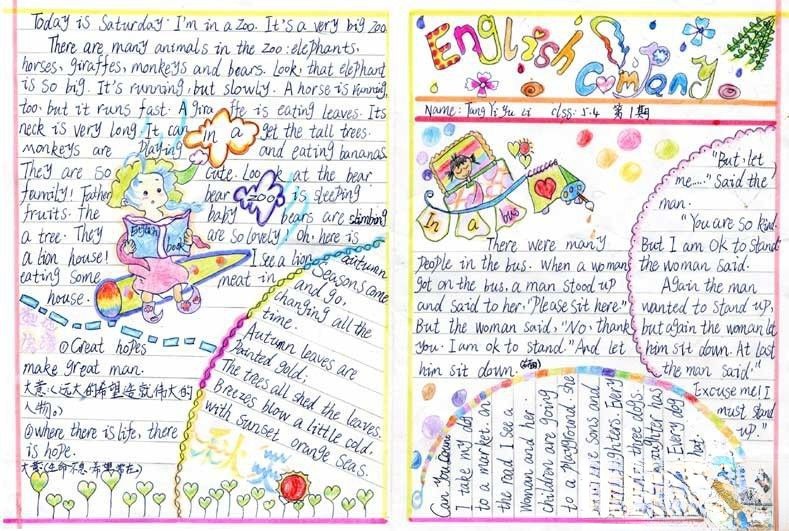 Today is Saturday. I'm in a zoo. It's a very big zoo
There are many animals in the zoo: elephants,
horses, giraffes, monkeys and bears. Look, that elephant
is so big. It's running, but slowly. A horse is running,
too, but it runs fast. A giraffe is eating leaves. Its
neck is very long. It can get the tall trees.
in a
monkeys are playing and eating bananas
They are so cute. Look at the bear
family! Father bear is sleeping
zoo
fruits. The baby bears are climbing
a tree. They are so lovely Oh, here is
a lion house! I see a lion
eating some meat in
house.
English book
①Great hopes
make great man.
大意:(远大的希望造就伟大的
人物。)
②where there is life, there
is hope.
大意(生命不息,希望常在。)
autumn
Seasons come
and go.
changing all the
time.
Autumn leaves are
Painted gold;
The trees all shed the leaves.
Breezes blow a little cold.
with sunset orange seas.
秋
English
Company
Name: Tang Yi Yu Li class: 5.4 第1期
In a bus
There were many
people in the bus. When a woman
got on the bus, a man stood up
and said to her, "Please sit here."
But the woman said, "No, thank
you. I am ok to stand." And let
him sit down.
"But, let
me....." Said the
man.
"You are so kind.
But I am ok to stand
the woman said.
Again the man
wanted to stand up,
but again the woman let
him sit down. At last
the man said."
Excuse me! I
must stand
up."
I take my dog
to a market. on
the road I see a
Woman and her
children are going
to a playground. she
sons and
daughters. Every
three dogs.
daughter has
Every dog
hat.